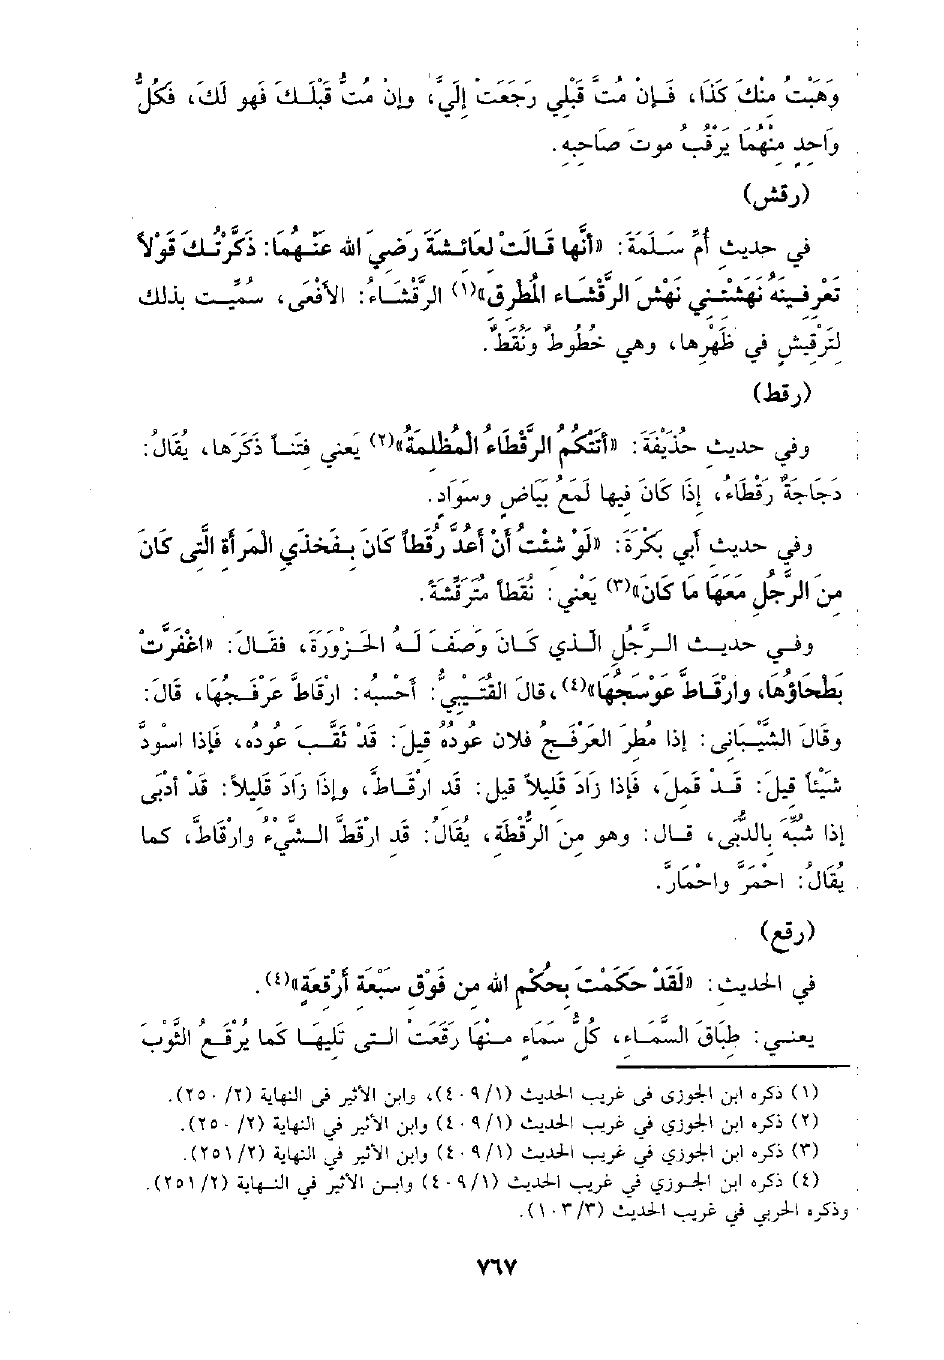 وَهَبْتُ مِنْكَ كَذَا، فَإِنْ مُتَّ قَبْلِي رَجَعَتْ إِلَيَّ، وإِنْ مُتُّ قَبْلَكَ فَهو لَكَ، فَكُلُّ
وَاحِدٍ مِنْهُمَا يَرْقُبُ موتَ صَاحِبِهِ.
(رقش)
في حديثِ أُمِّ سَلَمَةَ: «أَنَّها قَالَتْ لعَائشَةَ رَضِيَ الله عَنْهُمَا: ذَكَّرْتُكَ قَوْلاً
تَعْرِفينَهُ نَهَشْتِنِي نَهْشَ الرَّقْشَاء الُمطْرِق»(١) الرَّقْشَاءُ: الأَفْعَى، سُمِّيت بذلك
لِتَرْقِيشٍ في ظَهْرِها، وهي خُطُوطٌ ونُقَطٌ.
(رقط)
وفي حديث حُذَيْفَةَ: «أَتَتْكُمُ الرَّقْطَاءُ الْمُظلِمَةُ»(٢) يَعني فِتَناً ذَكَرَها، يُقَالُ:
دَجَاجَةٌ رَقْطَاءُ، إِذَا كَانَ فيها لُمَعُ بَيَاضٍ وسَوَادٍ.
وفى حديث أَبي بَكْرَةَ: «لَوْ شئْتُ أَنْ أَعُدَّ رُقَطاً كَانَ بِفَخذَي الْمَرأَة الَّتى كَانَ
مِنَ الرَّجُلِ مَعَهَا مَا كَانَ»(٣) يَعْني: نُقَطاً مُتَرَقِّشَةً.
وفي حديث الرَّجُلِ الَّذي كَانَ وَصَفَ لَهُ الْحَزْوَرَةَ، فقَالَ: «اغْفَرَّتْ
بَطحَاؤُها، وارْقَاطَّ عَوْسَجُهَا»(٤)، قَالَ القُتَيْبِيُّ: أَحْسبُه: ارْقَاطَّ عَرْفَجُهَا، قَالَ:
وقَالَ الشَّيْبَانى: إذا مُطِرَ العَرْفَجُ فلان عودُهُ قيلَ: قَدْ ثَقَّبَ عُودُه، فَإذا اسْودَّ
شَيْئاً قيلَ: قَدْ قَمِلَ، فَإذا زَادَ قَليلاً قيل: قَد ارْقَاطَّ، وإِذَا زَادَ قَليلاً: قَدْ أَدْبَى
إذا شُبِّهَ بالدُّبَى، قال: وهو منَ الرُّقْطَة، يقَالُ: قَد ارْقَطَّ الشَّيْءُ وارْقَاطَّ، كما
يُقَالُ: احْمَرَّ واحْمَارَّ.
(رقع)
في الحَديث: «لَقَدْ حَكَمْتَ بِحُكْمِ الله من فَوْق سَبْعَة أَرْقِعَة»(٤).
يعني: طِبَاقَ السَّمَاءِ، كُلُّ سَمَاءٍ منْهَا رَقَعَتْ التى تَليهَا كما يُرْقَعُ الثَّوْبَ
(١) ذكره ابن الجوزى في غريب الحديث (١/ ٤٠٩)، وابن الأثير فى النهاية (٢/ ٢٥٠).
(٢) ذكره ابن الجوزي في غريب الحديث (١/ ٤٠٩) وابن الأثير في النهاية (٢/ ٢٥٠).
(٣) ذكره ابن الجوزي في غريب الحديث (١/ ٤٠٩) وابن الأثير في النهاية (٢/ ٢٥١).
(٤) ذكره ابن الجوزي في غريب الحديث (١/ ٤٠٩) وابن الأثير في النهاية (٢/ ٢٥١).
وذكره الحربي في غريب الحديث (٣/ ١٠٣).
٧٦٧